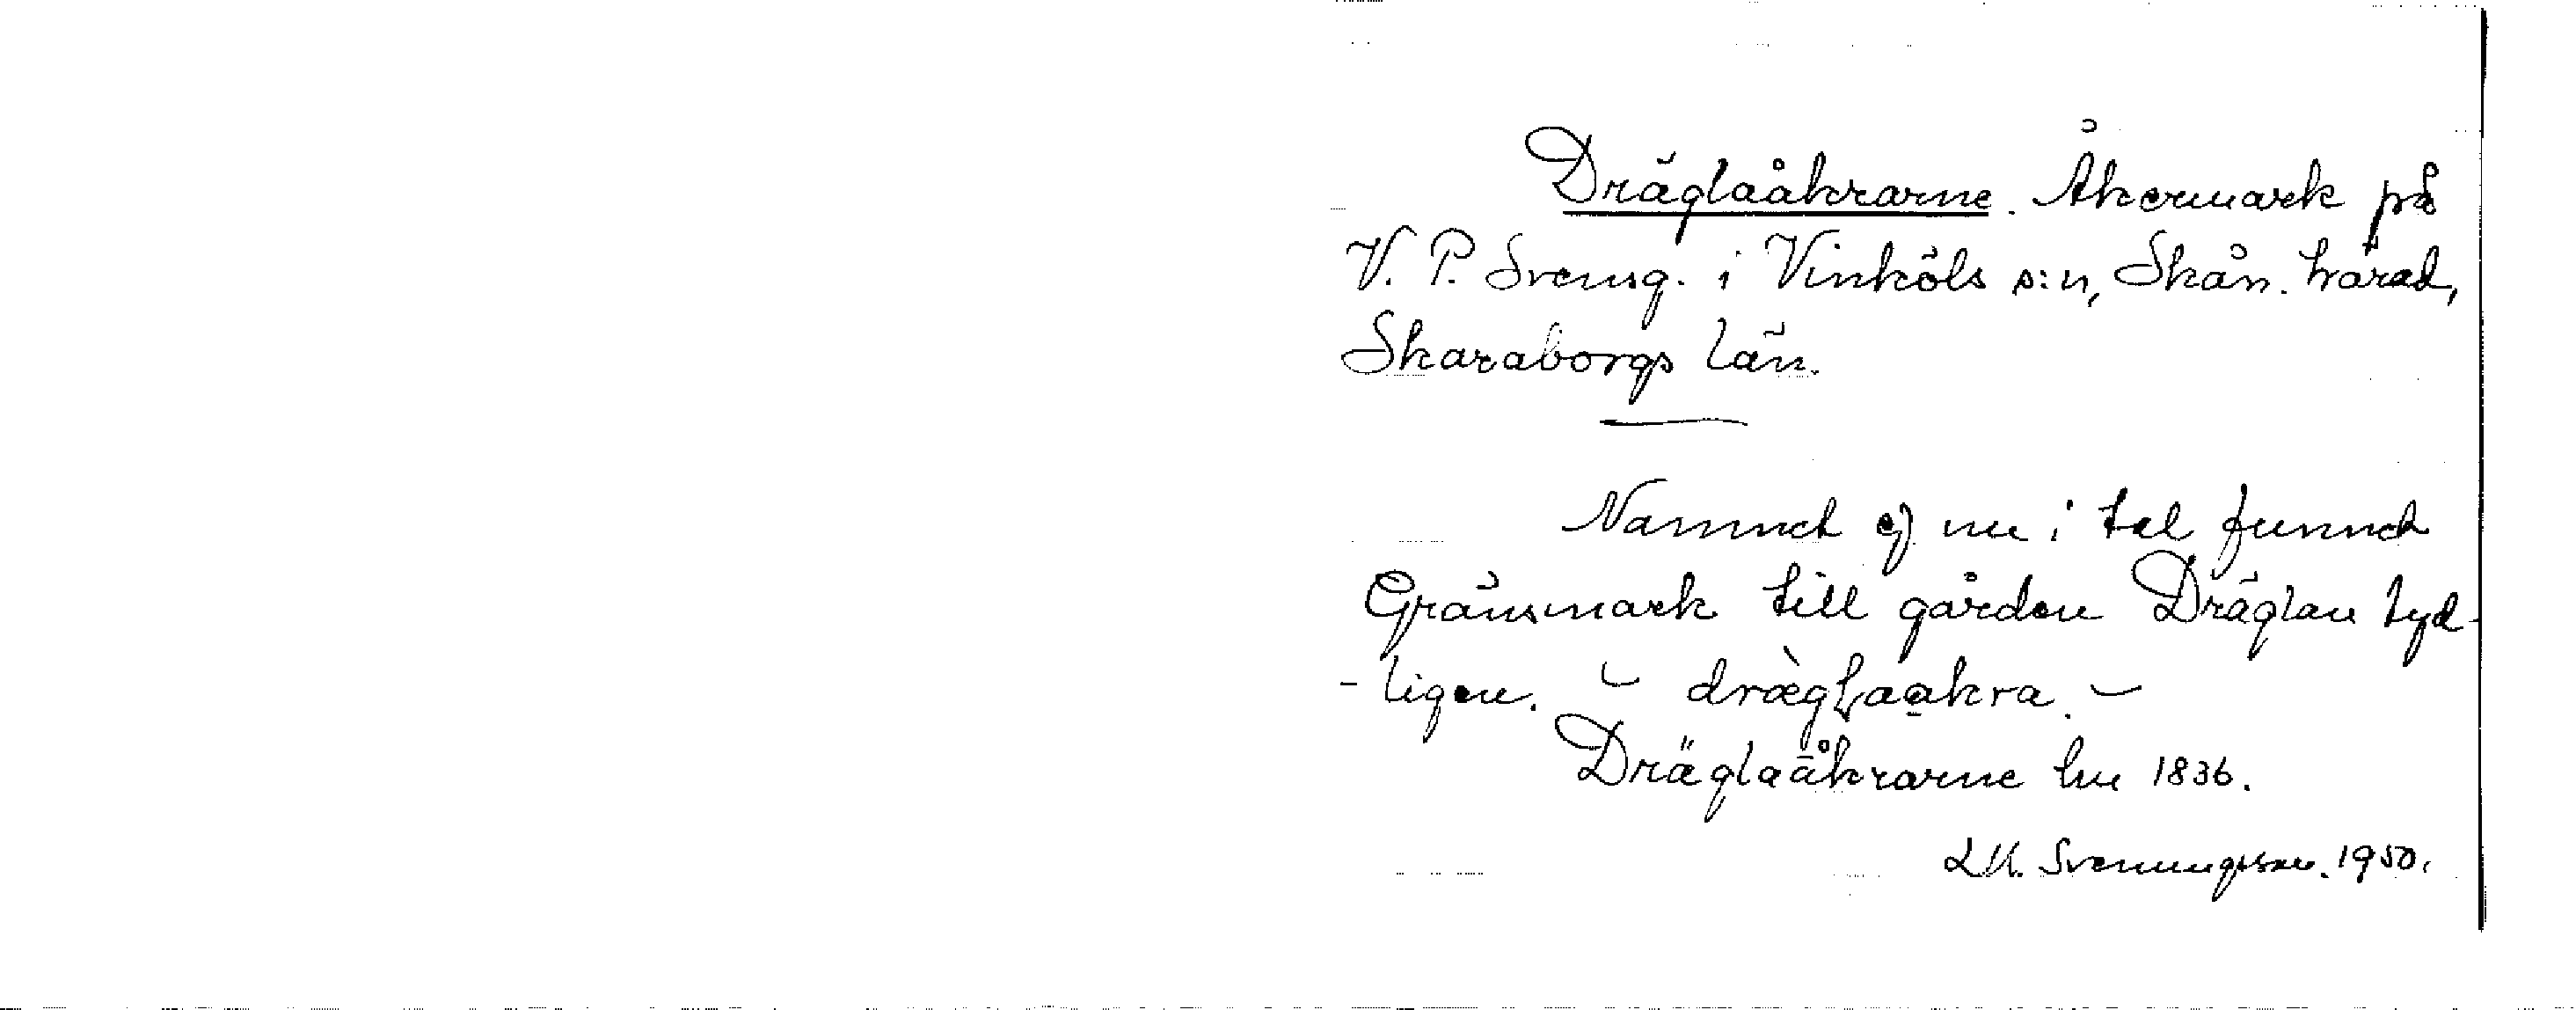 Dräglaåkrarne. Åkermark på
V. P. Svensg. i Vinköls s:n, Skån. härad,
Skaraborgs län.
Namnet ej nu i tal funnet
Gränsmark till gården Dräglan tyd-
- ligen. - dræ̀gɽaakra. -
Dräglaåkrarne lm 1836.
LM. Svenungsson. 1950.